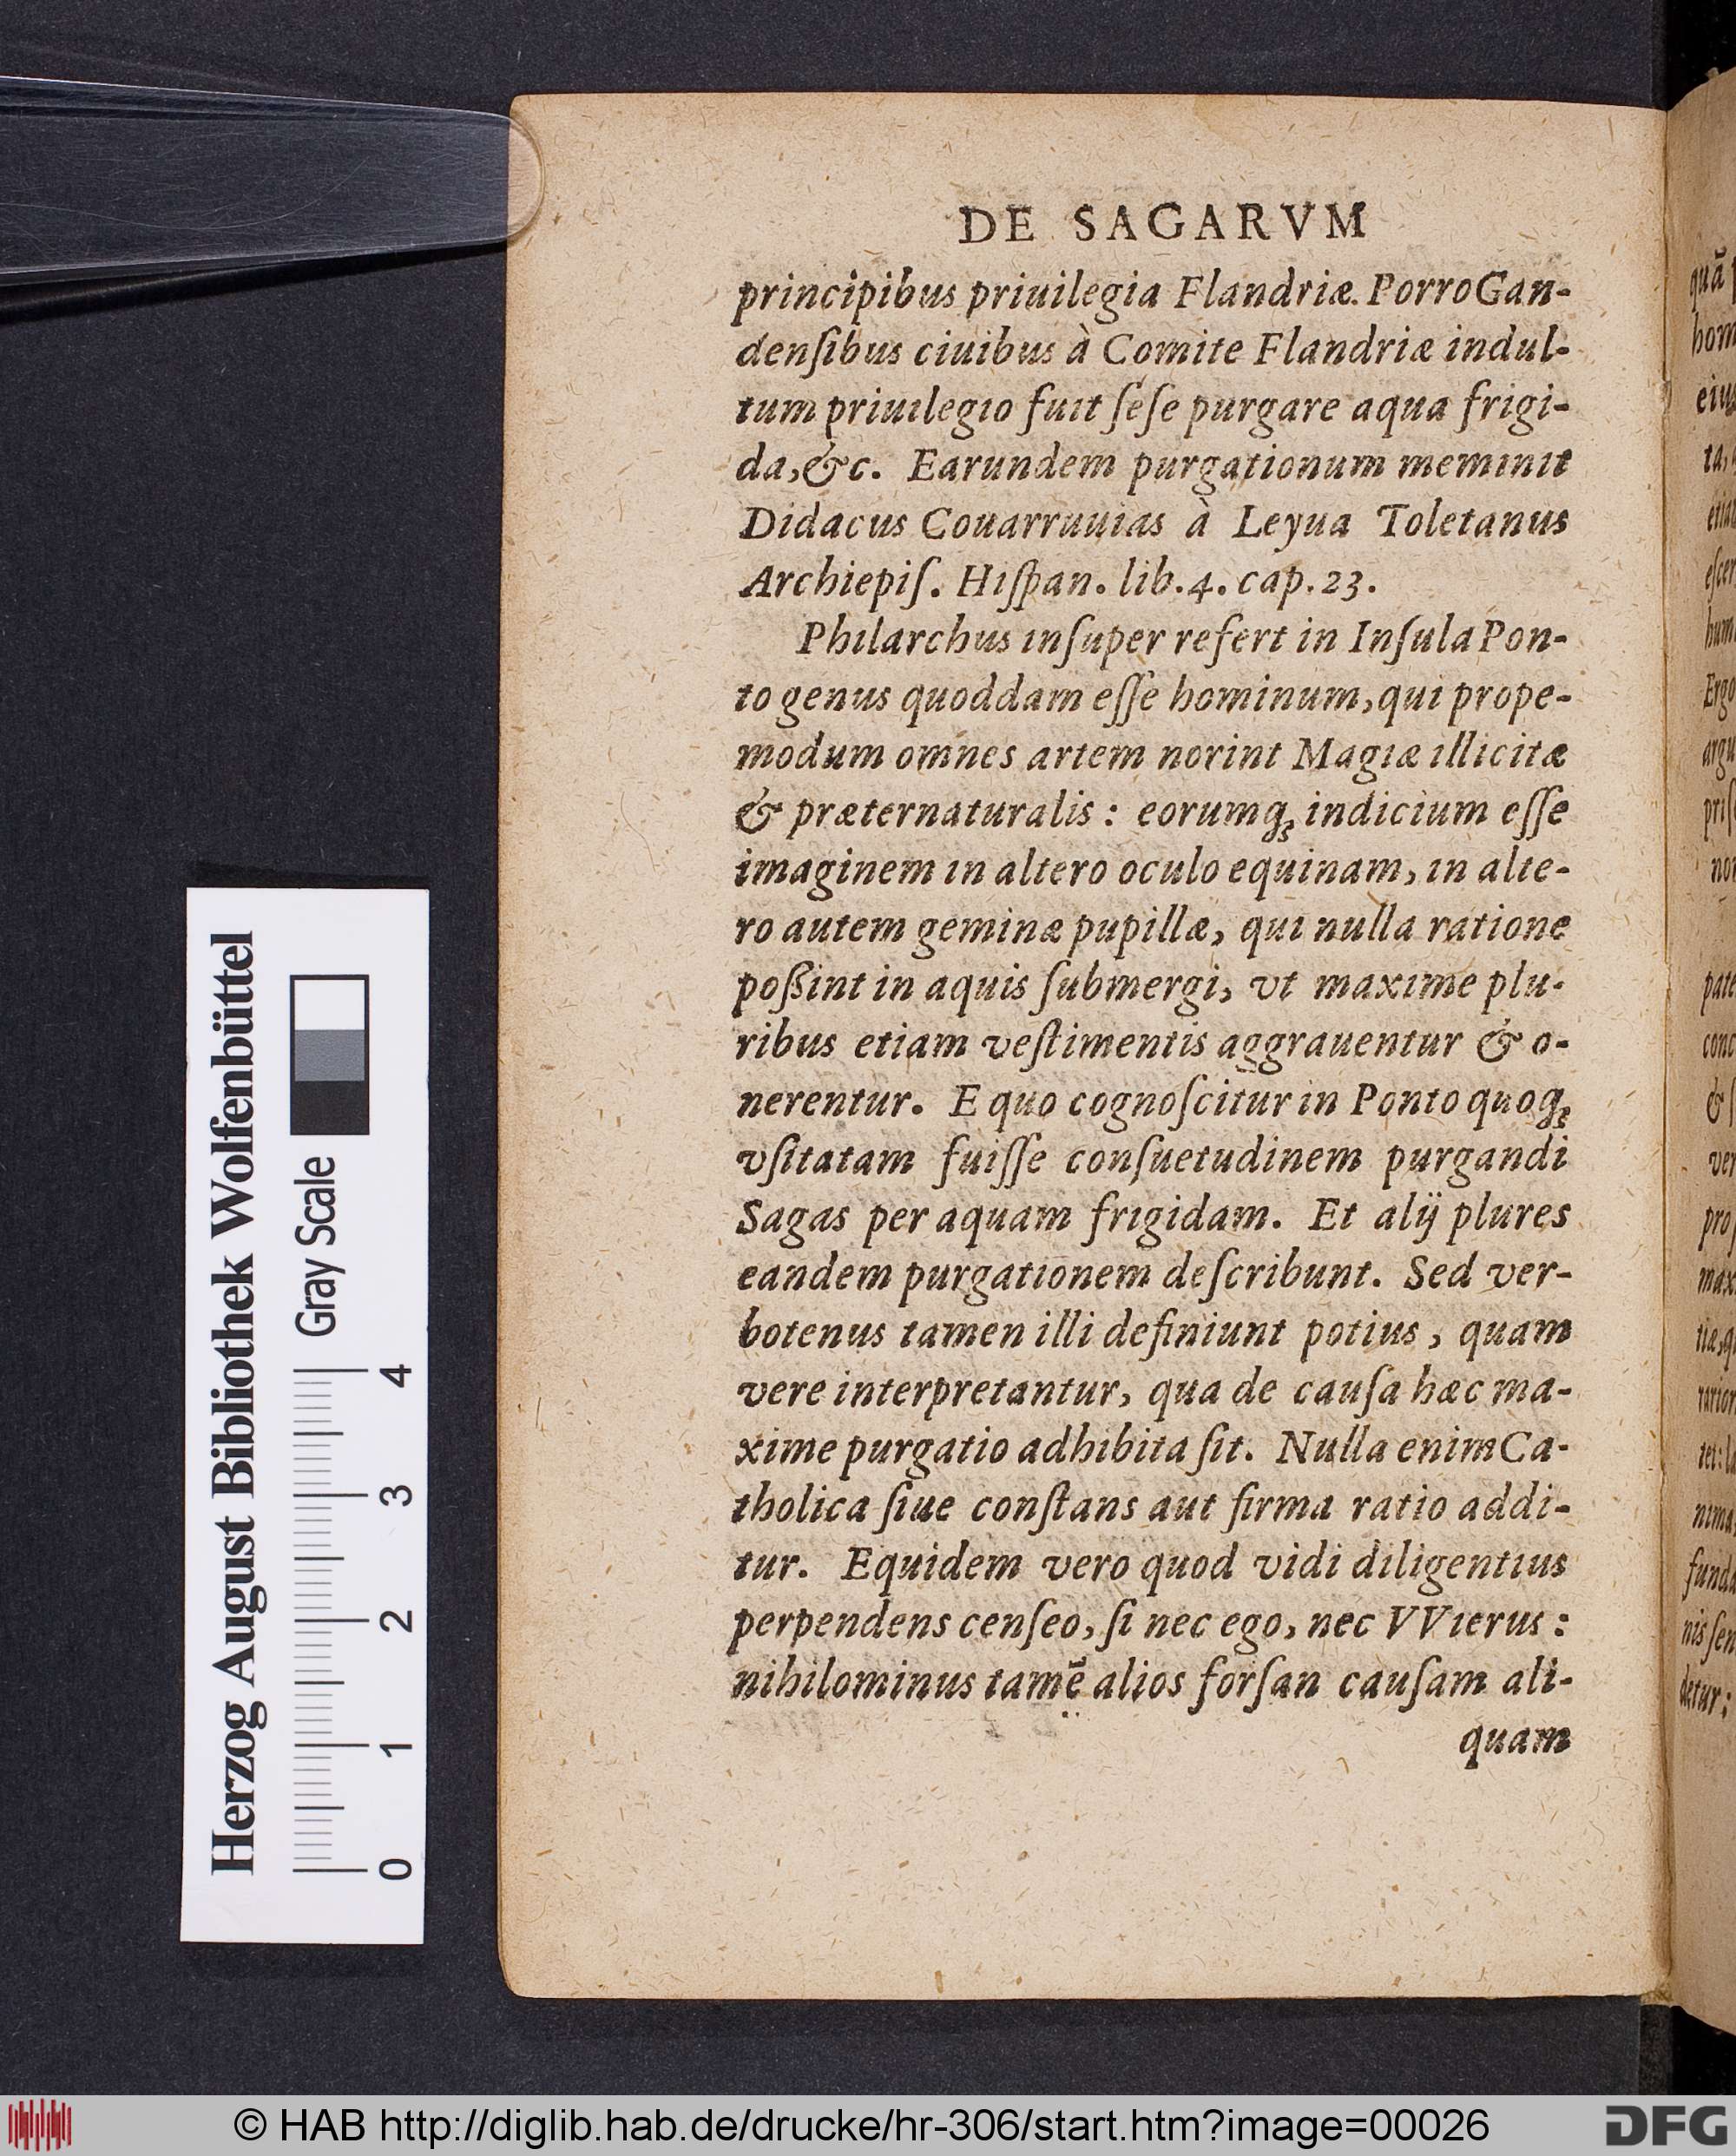 DE SAGARVM
principibus priuilegia Flandriæ. Porro Gan-
denſibus ciuibus à Comite Flandriæ indul-
tum priuilegio fuit ſeſe purgare aqua frigi-
da, &c. Earundem purgationum meminit
Didacus Couarruuias à Leyua Toletanus
Archiepiſ. Hiſpan. lib. 4. cap. 23.
Philarchus inſuper refert in Inſula Pon-
to genus quoddam eſſe hominum, qui prope-
modum omnes artem norint Magiæ illicitæ
& præternaturalis : eorumq́ꝫ indicium eſſe
imaginem in altero oculo equinam, in alte-
ro autem geminæ pupillæ, qui nulla ratione
poßint in aquis ſubmergi, vt maxime plu-
ribus etiam veſtimentis aggrauentur & o-
nerentur. E quo cognoſcitur in Ponto quoqꝫ
vſitatam fuiſſe conſuetudinem purgandi
Sagas per aquam frigidam. Et alij plures
eandem purgationem deſcribunt. Sed ver-
botenus tamen illi definiunt potius, quam
vere interpretantur, qua de cauſa hæc ma-
xime purgatio adhibita ſit. Nulla enim Ca-
tholica ſiue conſtans aut firma ratio addi-
tur. Equidem vero quod vidi diligentius
perpendens cenſeo, ſi nec ego, nec VVierus :
nihilominus tamē alios forſan cauſam ali-
quam
Herzog August Bibliothek Wolfenbüttel
Gray Scale
0 1 2 3 4
© HAB http://diglib.hab.de/drucke/hr-306/start.htm?image=00026
DFG